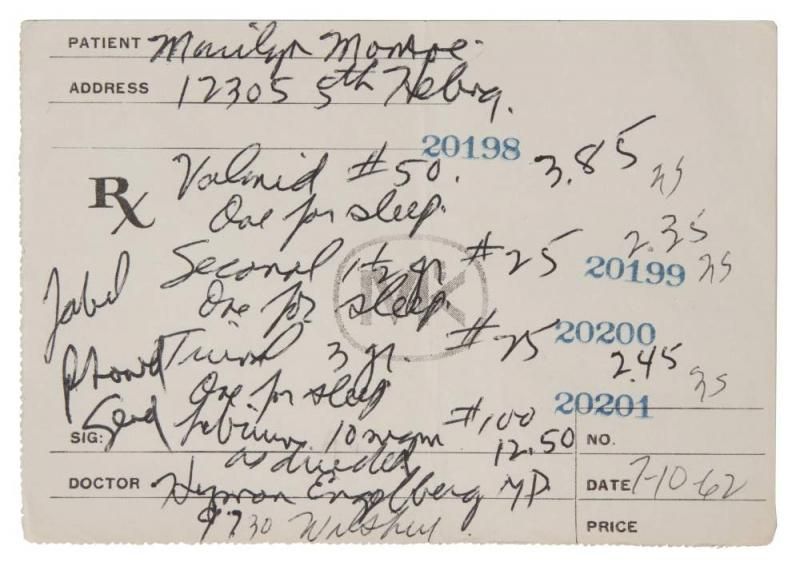 PATIENT Marilyn Monroe.
ADDRESS 12305 5th Helena.
20198
Rx Valmid #50. 3.85 ns
One for sleep.
Seconal 1½ gr #25 2.35
20199 ns
Label One for sleep.
MK
20200
Tuinal 3 gr. #25 2.45 ns
One for sleep
20201
Send Librium 10 mgm #100 12.50
SIG: NO.
as directed
DOCTOR Hyman Engelberg MD DATE 7-10-62
9730 Wilshire PRICE